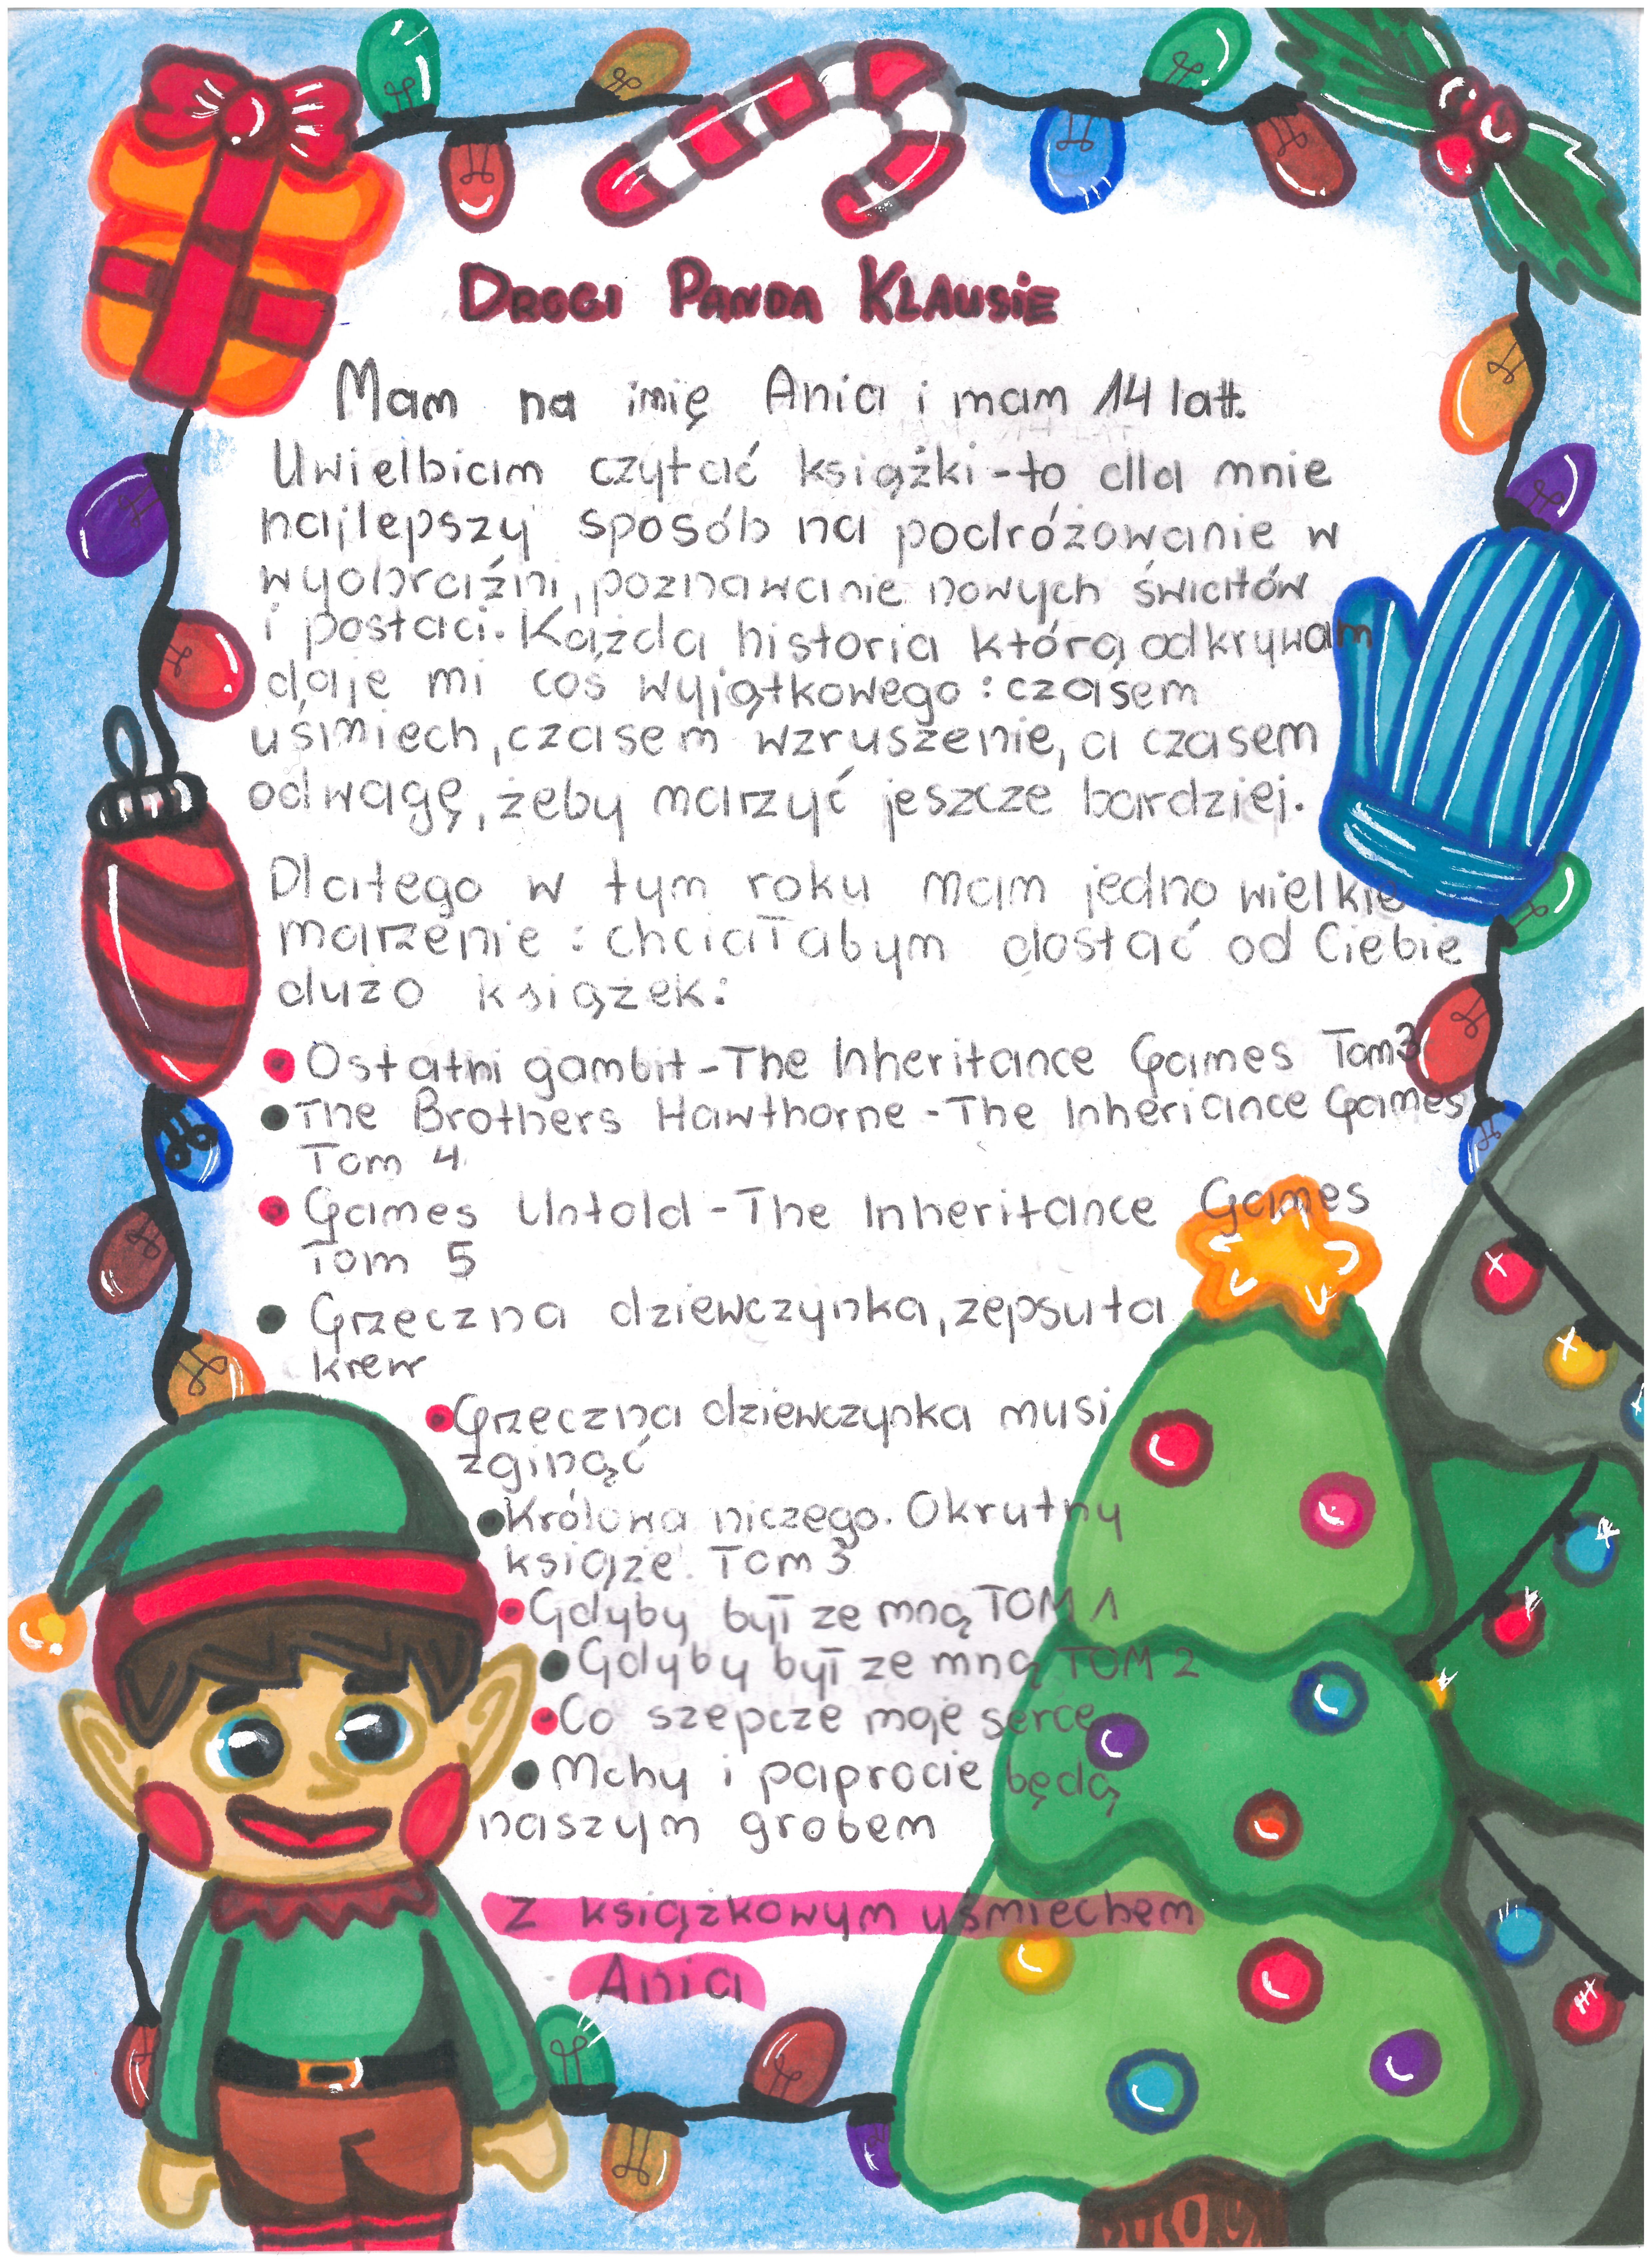 DROGI PANDA KLAUSIE
Mam na imię Ania i mam 14 lat.
Uwielbiam czytać książki-to dla mnie
najlepszy sposób na podróżowanie w
wyobraźni, poznawanie nowych światów
i postaci. Każda historia którą odkrywam
daje mi coś wyjątkowego: czasem
uśmiech, czasem wzruszenie, a czasem
odwagę, żeby marzyć jeszcze bardziej.
Dlatego w tym roku mam jedno wielkie
marzenie: chciałabym dostać od Ciebie
dużo książek:
• Ostatni gambit-The Inheritance Games Tom3
• The Brothers Hawthorne-The Inhericance Games
Tom 4
• Games Untold-The Inheritance Games
Tom 5
• Grzeczna dziewczynka, zepsuta
krew
• Grzeczna dziewczynka musi
zginąć
• Królowa niczego. Okrutny
książe. Tom 3
• Gdyby był ze mną TOM 1
• Gdyby był ze mną TOM 2
• Co szepcze moje serce
• Mchy i paprocie będą
naszym grobem
Z książkowym uśmiechem
Ania